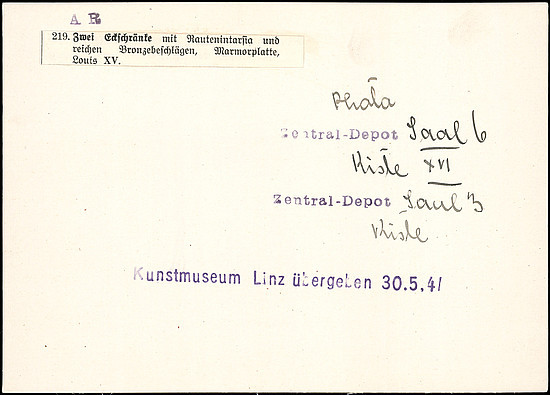 A R
219. Zwei Eckschränke mit Rautenintarsia und
reichen Bronzebeschlägen, Marmorplatte,
Louis XV.
Zentral-Depot Saal 6
Kiste XVI
Zentral-Depot Saal 3
Kiste
Kunstmuseum Linz übergeben 30.5.41